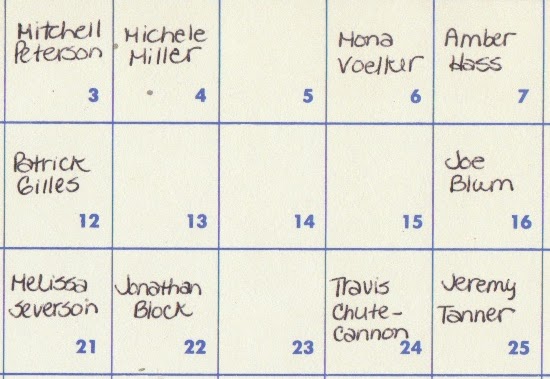 Mitchell
Peterson
3
Michele
Miller
4
5
Mona
Voelker
6
Amber
Hass
7
Patrick
Gilles
12
13
14
15
Joe
Blum
16
Melissa
Severson
21
Jonathan
Block
22
23
Travis
Chute-
Cannon
24
Jeremy
Tanner
25